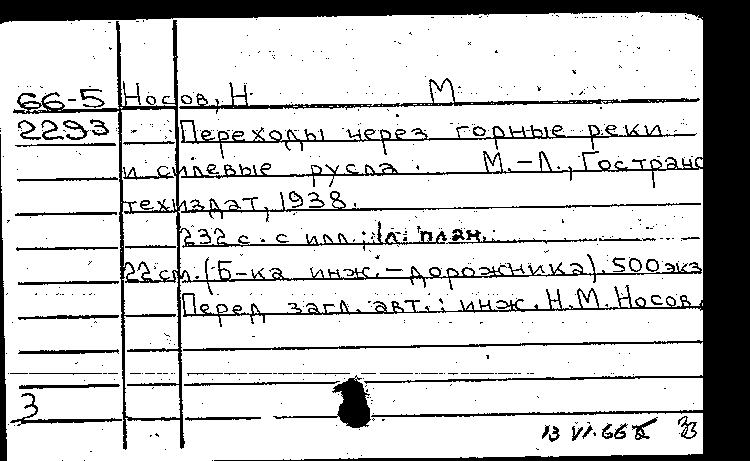 66-5 Носов, Н М
2293 Переходы через горные реки
и силевые русла. М.-Л., Гостранс
техиздат, 1938.
232 с. с илл.; 1л. план.
22 см. (Б-ка инж.-дорожника). 500 экз
Перед загл. авт.: инж. Н.М. Носов.
3
13 VI.66